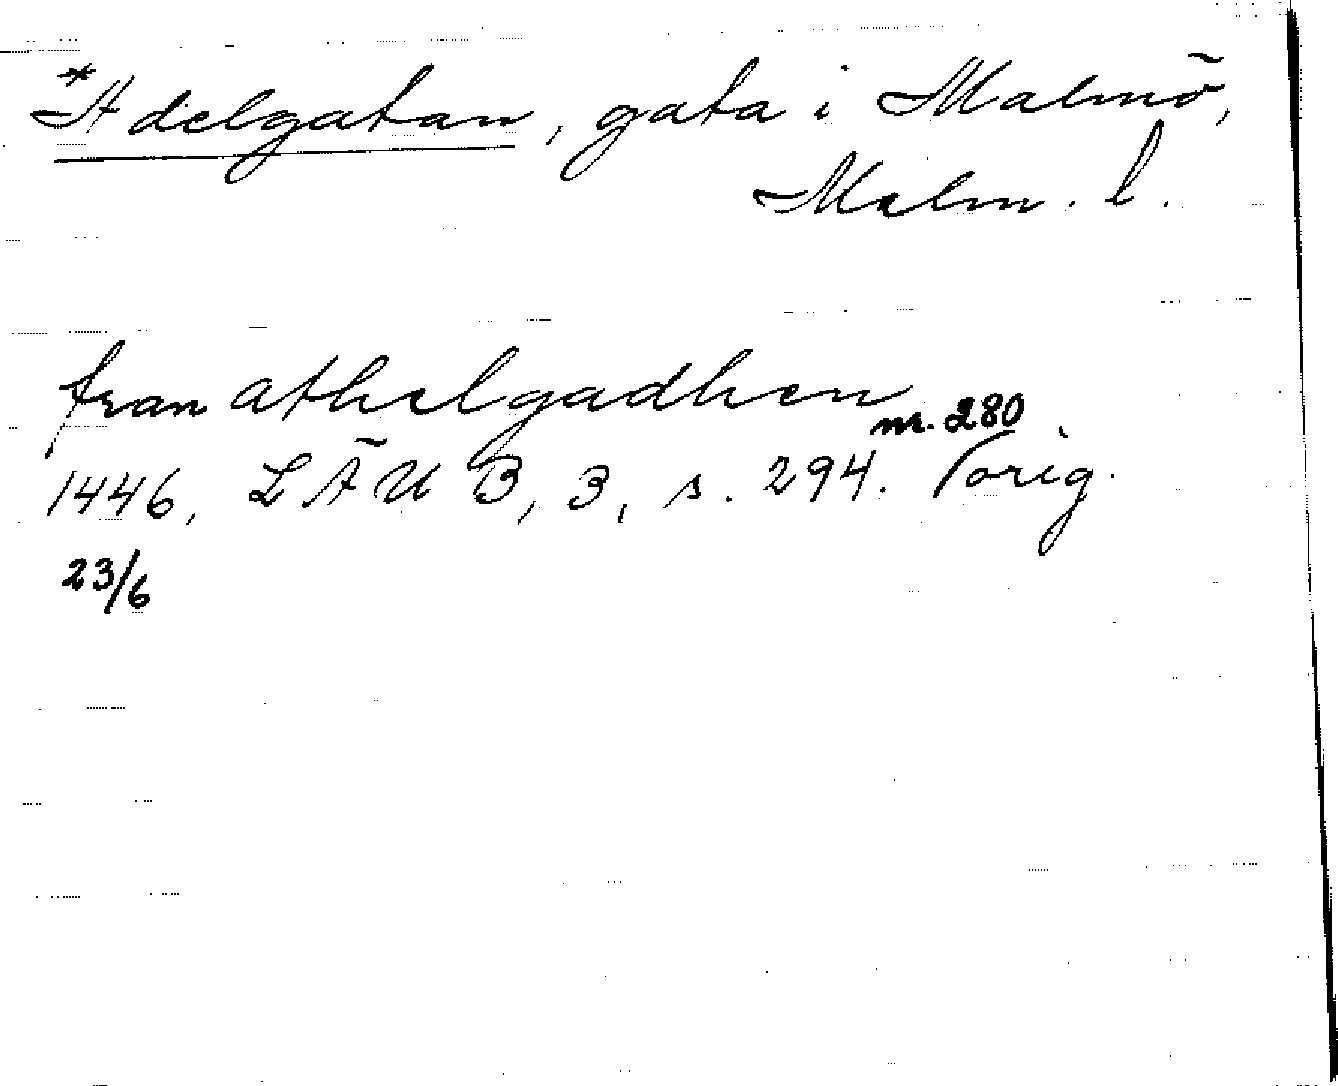 *Adelgatan, gata i Malmö,
Malm. l.
fran athelgadhen
nr. 280
1446, LÄUB, 3, s. 294. orig.
23/6